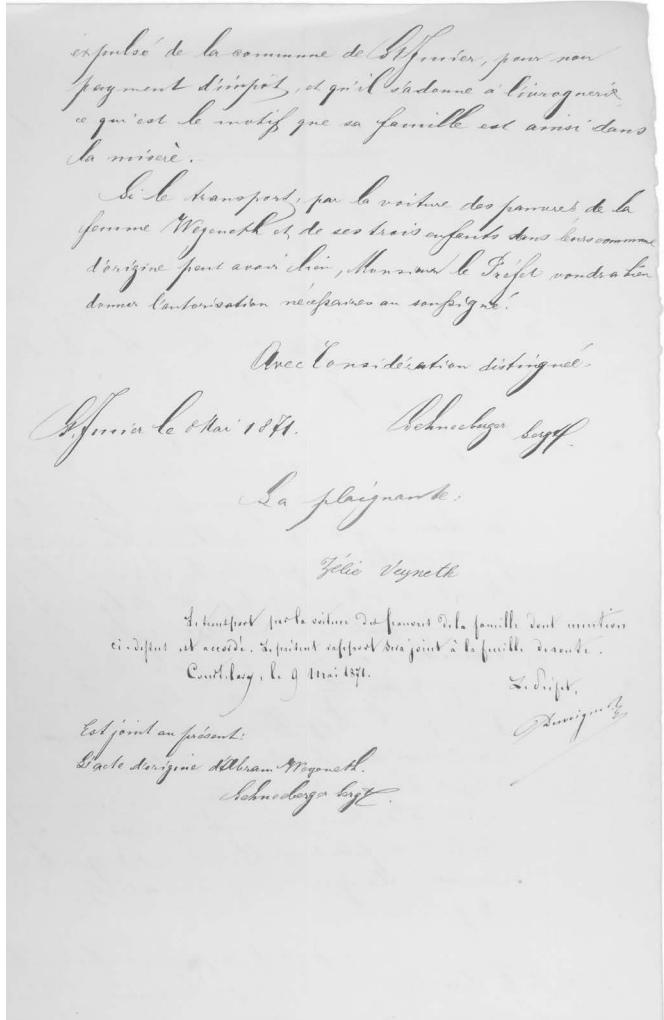 expulsé de la commune de St Imier, pour non
payment d'impôt, et qu'il s'adonne à l'ivrognerie,
ce qu'est le motif que sa famille est ainsi dans
la misère.
Si le transport, par la voiture des pauvres, de la
femme Weyeneth et de ses trois enfants dans leurs commune
d'origine peut avoir lieu, Monsieur le Préfet voudra bien
donner l'autorisation nécessaires au soussigné.
Avec Considération distinguée.
St. Imier le Mai 1871.
Schneeberger Sergt.
La plaignante:
Zélie Veyneth
Le transport par la voiture des pauvres de la famille dont mention
ci-dessus est accordé. Le présent rapport sera joint à la feuille de route.
Courtelary, le 9 Mai 1871.
Le Préfet,
Est joint au présent:
L'acte d'origine d'Abram Weyeneth.
Schneeberger Sergt.